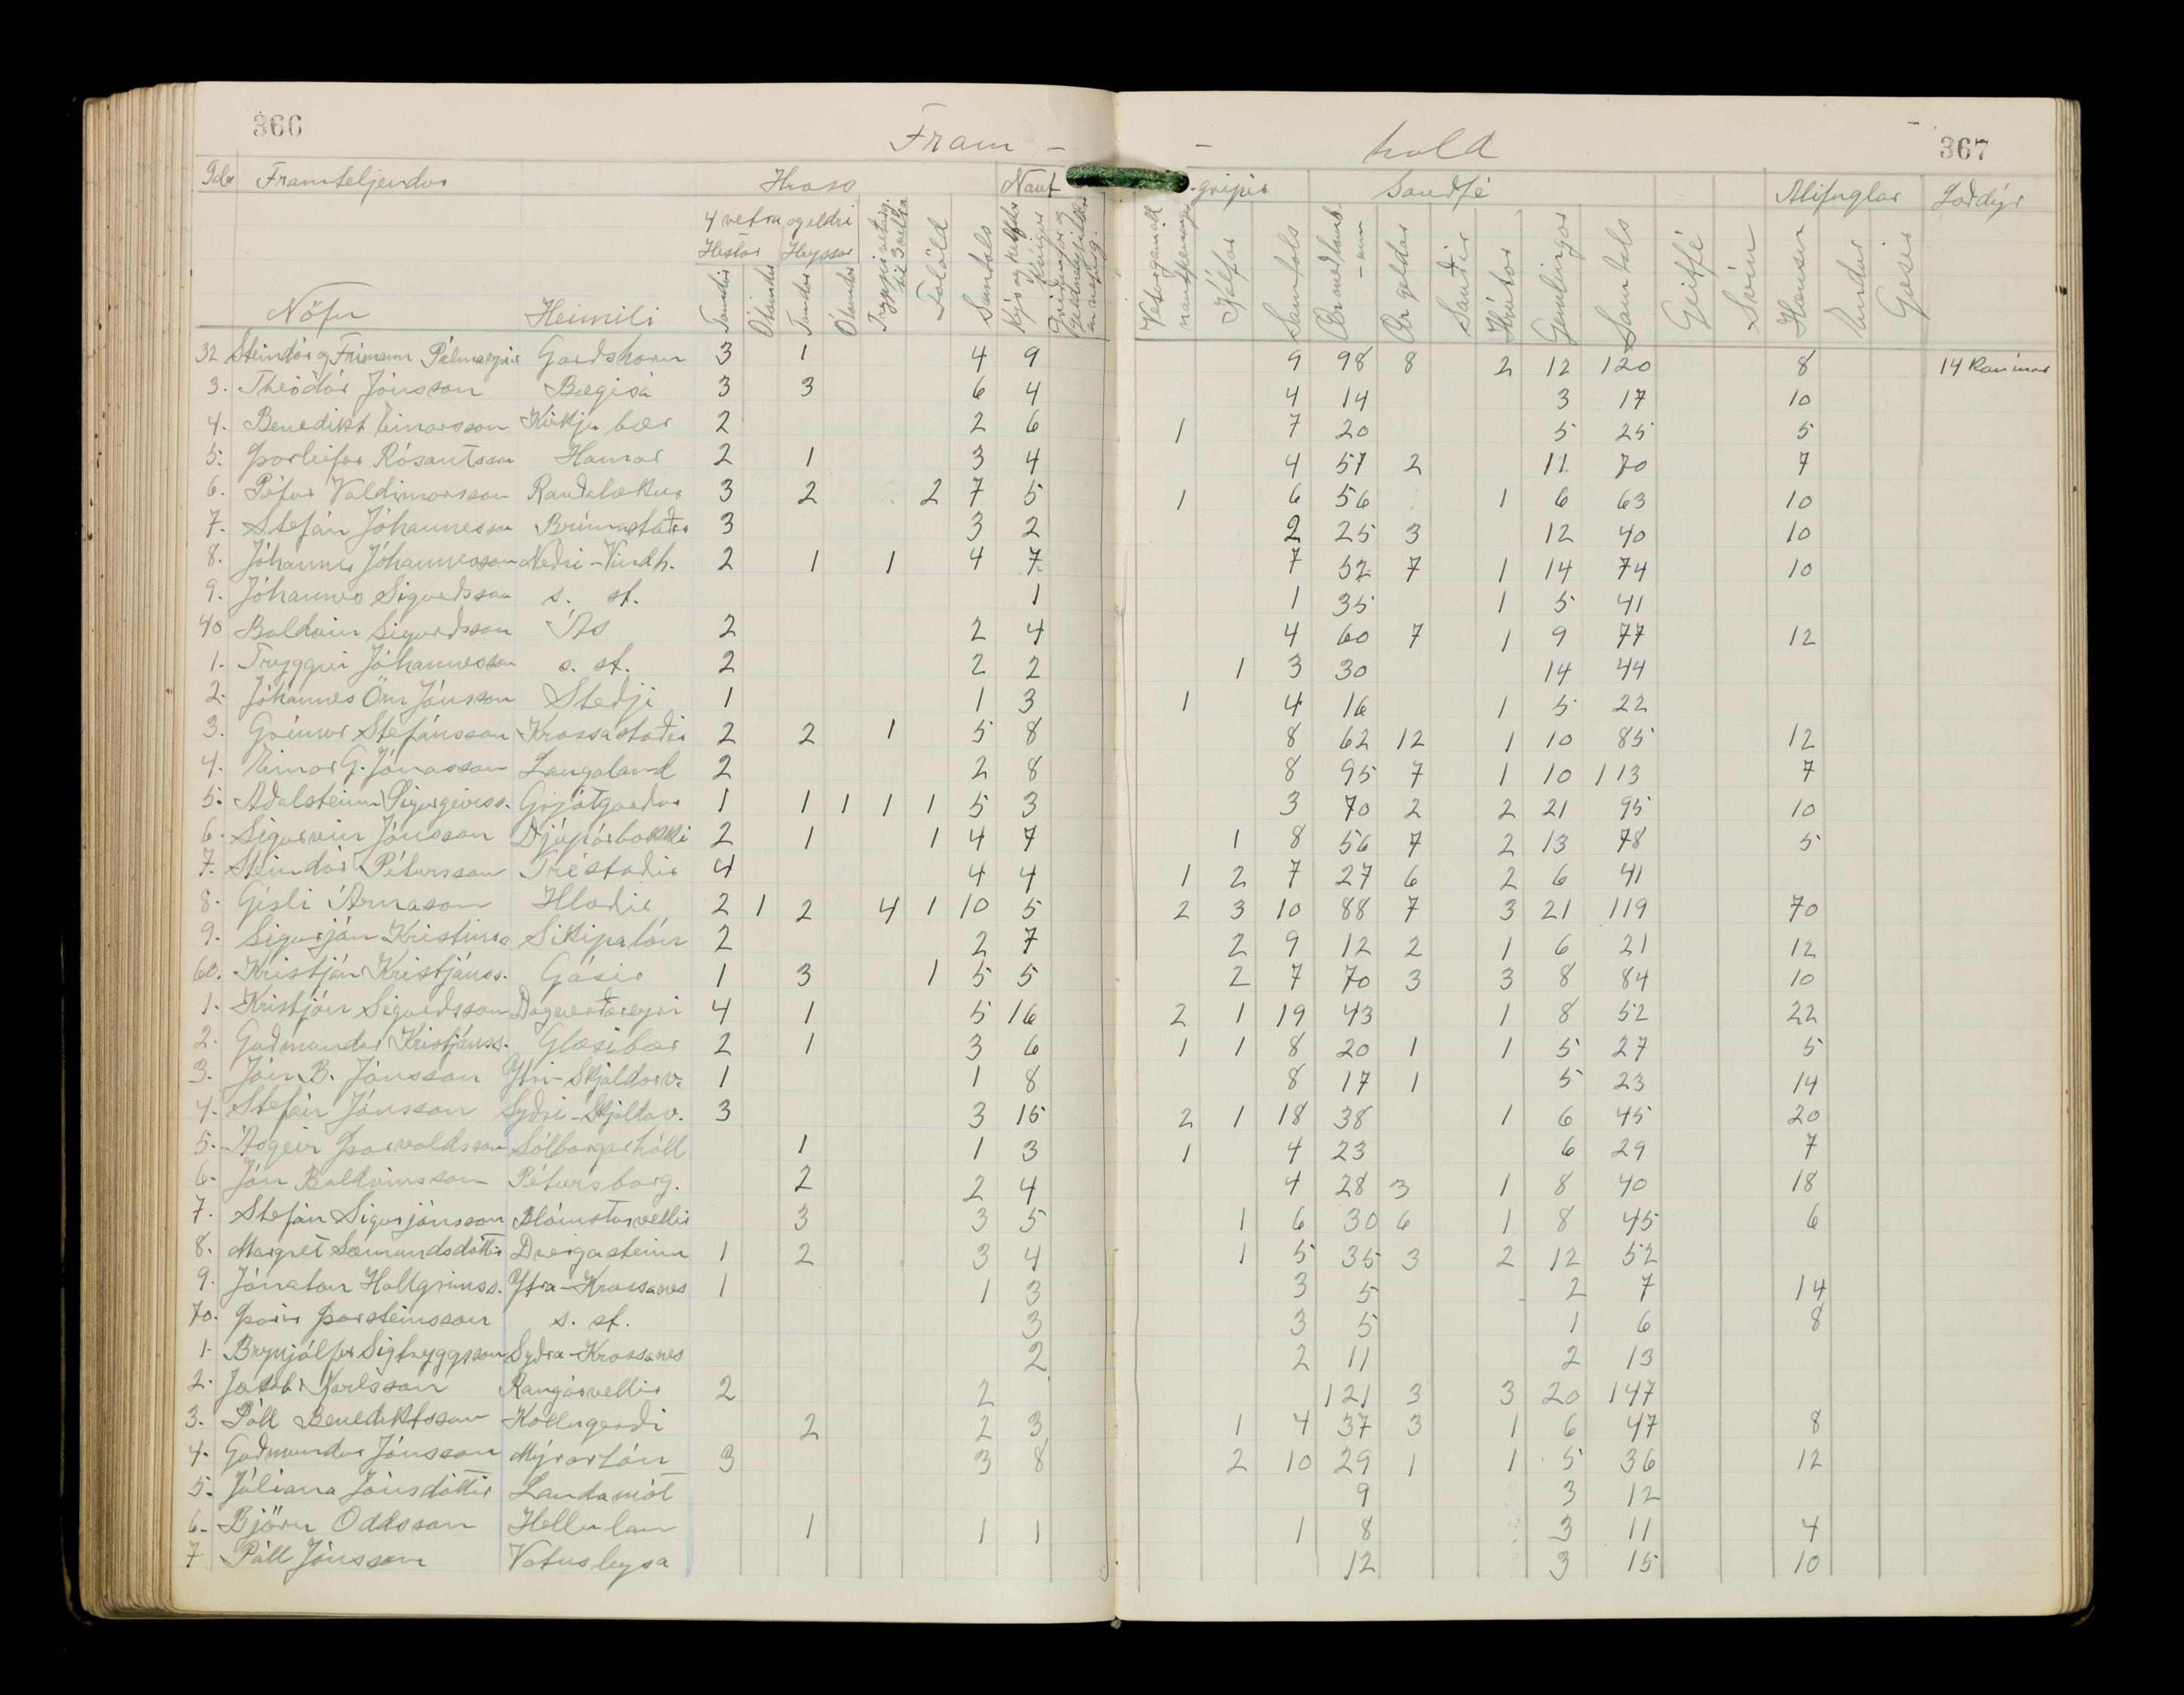 366
Fram -
- hald
367
Framteljendur Hross Naut
gripir Sauðfé Alifuglar Loðdýr
4 vetra og eldri
Hestar Hryssur
Nöfn Heimili Tamdir Ótamdir Tamdar Ótamdar Folöld Samtals
Veturgamall nautpeningur Kálfar Samtals Ær með lömbum Ær geldar Sauðir Hrútar Gemlingar Samtals Geitfé Svín Hænsn Endur Gæsir
32 Steindór og Frímann Pálmasynir Garðshorn 3 1 4 9 9 98 8 2 12 120 8 14 Kanínur
3. Theódór Jónsson Bægisá 3 3 6 4 4 14 3 17 10
4. Benedikt Einarsson Kirkjubær 2 2 6 1 7 20 5 25 5
5. Þorleifur Rósantsson Hamar 2 1 3 4 4 57 2 11 70 7
6. Pétur Valdimarsson Rauðalækur 3 2 2 7 5 1 6 56 1 6 63 10
7. Stefán Jóhannesson 3 3 2 2 25 3 12 40 10
8. Jóhannes Jóhannesson Neðri-Vindh. 2 1 1 4 7 7 52 7 1 14 74 10
9. Jóhannes Sigurðsson s. st. 1 1 35 1 5 41
40 Baldvin Sigurðsson Ás 2 2 4 4 60 7 1 9 77 12
1. Tryggvi Jóhannesson s. st. 2 2 2 1 3 30 14 44
2. Jóhannes Örn Jónsson Steðji 1 1 3 1 4 16 1 5 22
3. Grímur Stefánsson Krossastaðir 2 2 1 5 8 8 62 12 1 10 85 12
4. Einar G. Jónasson Laugaland 2 2 8 8 95 7 1 10 113 7
5. Aðalsteinn Sigurgeirss. Grjótgarður 1 1 1 1 1 5 3 3 70 2 2 21 95 10
6. Sigurvin Jónsson Djúpárbakki 2 1 1 4 7 1 8 56 7 2 13 78 5
7. Steindór Pétursson Tréstaðir 4 4 4 1 2 7 27 6 2 6 41
8. Gísli Árnason Hlaðir 2 1 2 4 1 10 5 2 3 10 88 7 3 21 119 70
9. Sigurjón Kristinss Skipalón 2 2 7 2 9 12 2 1 6 21 12
60. Kristján Kristjánss. Gásir 1 3 1 5 5 2 7 70 3 3 8 84 10
1. Kristján Sigurðsson Dagverðareyri 4 1 5 16 2 1 19 43 1 8 52 22
2. Guðmundur Kristjánss. Glæsibær 2 1 3 6 1 1 8 20 1 1 5 27 5
3. Jón B. Jónsson Ytri-Skjaldarv. 1 1 8 8 17 1 5 23 14
4. Stefán Jónsson Syðri-Skjaldav. 3 3 15 2 1 18 38 1 6 45 20
5. Ásgeir Þorvaldsson Sólborgarhóll 1 1 3 1 4 23 6 29 7
6. Jón Baldvinsson Pétursborg. 2 2 4 4 28 3 1 8 40 18
7. Stefán Sigurjónsson Blómsturvellir 3 3 5 1 6 30 6 1 8 45 6
8. Margrét Sæmundsdóttir Dvergasteinn 1 2 3 4 1 5 35 3 2 12 52
9. Jónatan Hallgrímss. Ytra-Krossanes 1 1 3 3 5 2 7 14
70. Þórir Þorsteinsson s. st. 3 3 5 1 6 8
1. Brynjólfur Sigtryggsson Syðra-Krossanes 2 2 11 2 13
2. Jakob Karlsson Rangárvellir 2 2 121 3 3 20 147
3. Páll Benediktsson Kollugerði 2 2 3 1 4 37 3 1 6 47 8
4. Guðmundur Jónsson Mýrarlón 3 3 8 2 10 29 1 1 5 36 12
5. Júlíana Jónsdóttir Landamót 9 3 12
6. Björn Oddsson Helluland 1 1 1 1 8 3 11 4
7 Páll Jónsson Vatnsleysa 12 3 15 10